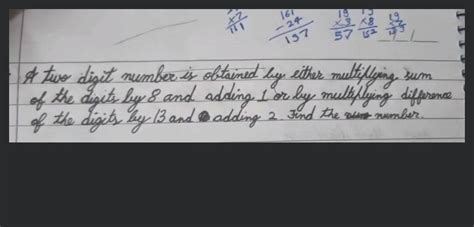 ×7
111
161
-24
137
19
×3
57
19
×8
152
19
A two digit number is obtained by either multiplying sum
of the digits by 8 and adding 1 or by multiplying difference
of the digits by 13 and adding 2. Find the number.